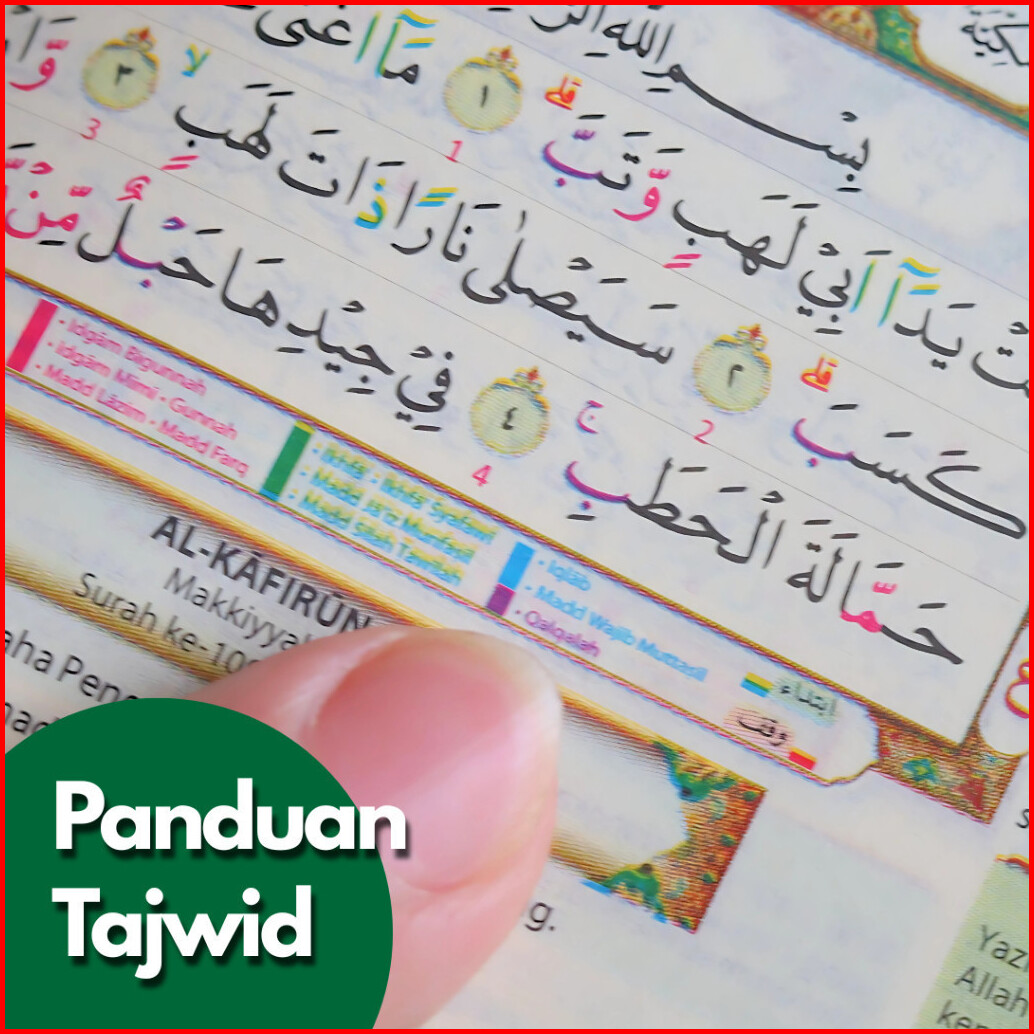 بِسْمِ اللهِ
يَدَآ اَبِيْ لَهَبٍ وَّتَبَّۗ ١ مَآ اَغْنٰى
1
كَسَبَۗ ٢ سَيَصْلٰى نَارًا ذَاتَ لَهَبٍۙ ٣
2 3
حَمَّالَةَ الْحَطَبِۚ ٤ فِيْ جِيْدِهَا حَبْلٌ مِّنْ
4
• Idgām Bigunnah
• Idgām Mimi - Gunnah
• Madd Lāzim - Madd Farq
• Ikhfā' - Ikhfā' Syafawi
• Madd Jā'iz Munfaṣil
• Madd Ṣilah Ṭawīlah
• Iqlāb
• Madd Wajib Muttaṣil
• Qalqalah
ابتداء
وقف
AL-KĀFIRŪN
Makkiyyah
Surah ke-10
g.
Allah
Panduan
Tajwid